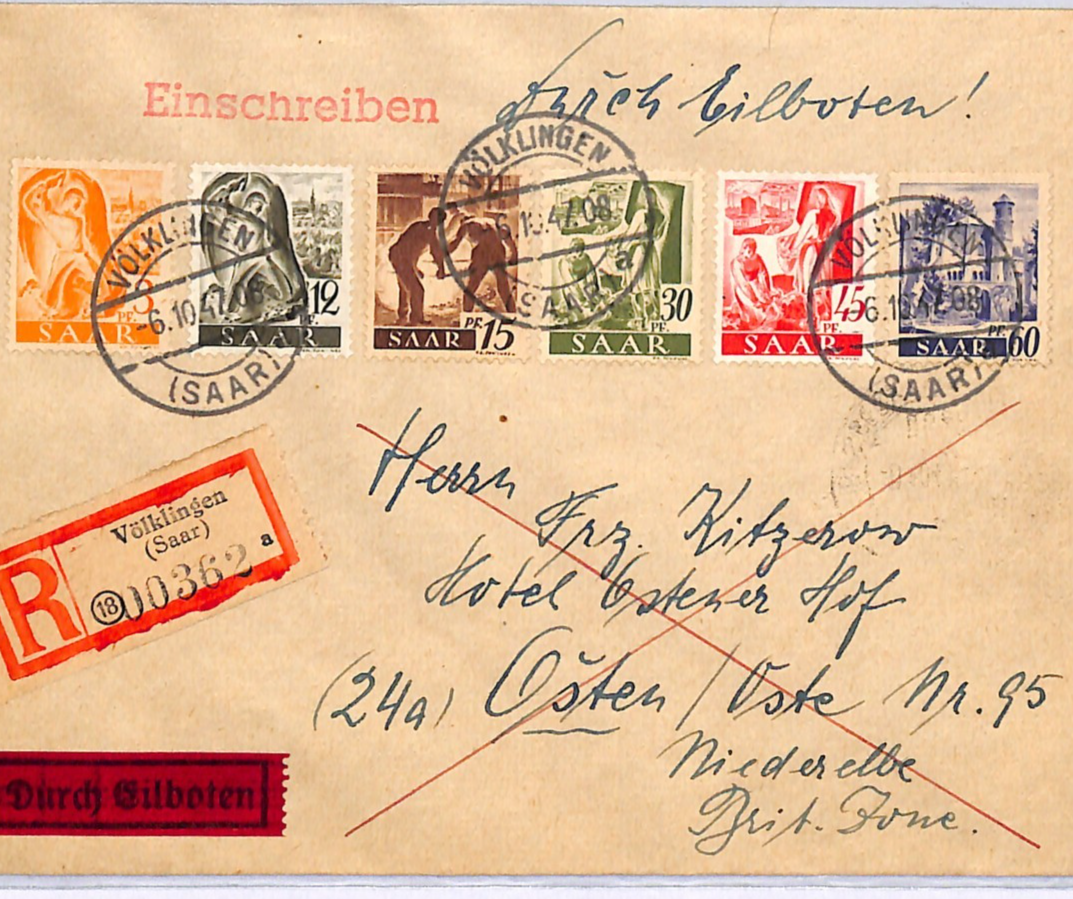 Einschreiben
Durch Eilboten!
3 PF. SAAR
12 SAAR
PF. 15 SAAR
30 PF. SAAR
45 PF. SAAR
PF. 60 SAAR
VÖLKLINGEN
-6.10.47.08
(SAAR)
VÖLKLINGEN
6.10.47.08
a
(SAAR)
VÖLKLINGEN
6.10.47.08
(SAAR)
R
Völklingen
(Saar)
a
(18) 00362
Durch Eilboten
Herrn
Frz. Kitzerow
Hotel Ostener Hof
(24a) Osten / Oste Nr. 95
Niederelbe
Brit. Zone.